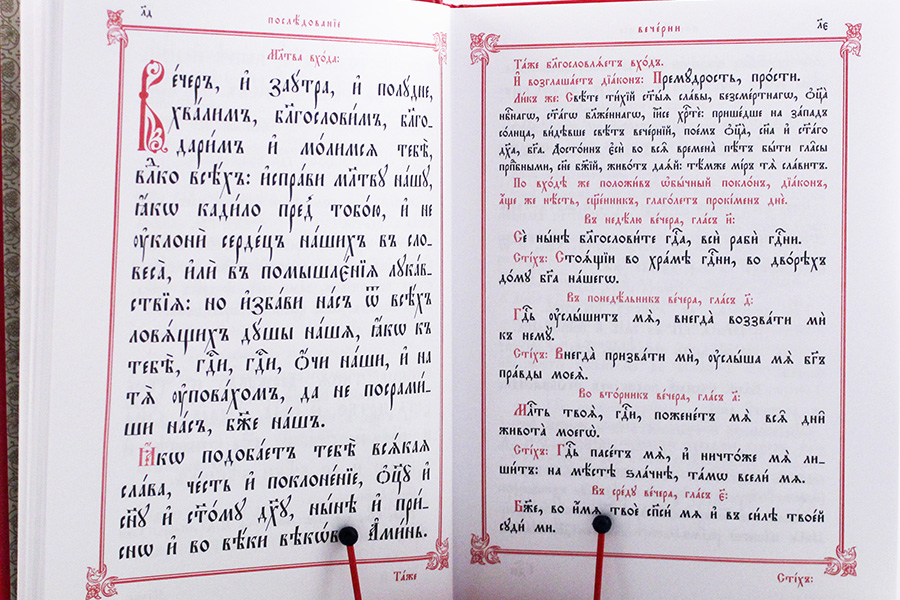 л҃д
послѣ́дованїе
Мл҃тва вхо́да:
Ве́черъ, и҆ заꙋ́тра, и҆ полꙋ́дне,
хва́лимъ, бл҃гослови́мъ, бл҃го-
дари́мъ и҆ мо́лимсѧ тебѣ̀,
влⷣко всѣ́хъ: и҆спра́ви мл҃твꙋ на́шꙋ,
ꙗ҆́кѡ кади́ло пред̾ тобо́ю, и҆ не
ᲂу҆клонѝ серде́цъ на́шихъ въ сло-
веса̀, и҆лѝ въ помышлє́нїѧ лꙋка́в-
ствїѧ: но и҆зба́ви на́съ ѿ всѣ́хъ
ловѧ́щихъ дꙋ́шы на́шѧ, ꙗ҆́кѡ къ
тебѣ̀, гдⷭ҇и, гдⷭ҇и, ѻ҆́чи на́ши, и҆ на
тѧ̀ ᲂу҆пова́хомъ, да не посрами́-
ши на́съ, бж҃е на́шъ.
Ꙗ҆́кѡ подоба́етъ тебѣ̀ всѧ́каѧ
сла́ва, че́сть и҆ поклоне́нїе, ѻ҆ц҃ꙋ̀ и҆
сн҃ꙋ и҆ ст҃о́мꙋ дх҃ꙋ, ны́нѣ и҆ при́-
снѡ и҆ во вѣ́ки вѣкѡ́въ. А҆ми́нь.
Та́же
л҃є
вече́рни
Та́же бл҃гословлѧ́етъ вхо́дъ.
И҆ возглаша́етъ дїа́конъ: Премꙋ́дрость, про́сти.
Ли́къ же: Свѣ́те ти́хїй ст҃ы́ѧ сла́вы, безсме́ртнагѡ, ѻ҆ц҃а̀
нбⷭ҇нагѡ, ст҃а́гѡ бл҃же́ннагѡ, і҆и҃се хрⷭ҇тѐ: прише́дше на за́падъ
со́лнца, ви́дѣвше свѣ́тъ вече́рнїй, пое́мъ ѻ҆ц҃а̀, сн҃а и҆ ст҃а́го
дх҃а, бг҃а. Досто́инъ є҆сѝ во всѧ̑ времена̀ пѣ́тъ бы́ти гла́сы
прпⷣбными, сн҃е бж҃їй, живо́тъ даѧ́й: тѣ́мже мі́ръ тѧ̀ сла́витъ.
По вхо́дѣ же положи́въ ѡ҆бы́чный покло́нъ, дїа́конъ,
а҆́ще же нѣ́сть, сщ҃е́нникъ, глаго́летъ прокі́менъ днѐ.
Въ недѣ́лю ве́чера, гла́съ и҃:
Сѐ ны́нѣ бл҃гослови́те гдⷭ҇а, всѝ рабѝ гдⷭ҇ни.
Сті́хъ: Стоѧ́щїи во хра́мѣ гдⷭ҇ни, во дво́рѣхъ
до́мꙋ бг҃а на́шегѡ.
Въ понедѣ́льникъ ве́чера, гла́съ д҃:
Гдⷭ҇ь ᲂу҆слы́шитъ мѧ̀, внегда̀ воззва́ти мѝ
къ немꙋ̀.
Сті́хъ: Внегда̀ призва́ти мѝ, ᲂу҆слы́ша мѧ̀ бг҃ъ
пра́вды моеѧ̀.
Во вто́рникъ ве́чера, гла́съ а҃:
Млⷭ҇ть твоѧ̀, гдⷭ҇и, пожене́тъ мѧ̀ всѧ̑ дни̑
живота̀ моегѡ̀.
Сті́хъ: Гдⷭ҇ь пасе́тъ мѧ̀, и҆ ничто́же мѧ̀ ли-
ши́тъ: на мѣ́стѣ ѕла́чнѣ, та́мѡ всели́ мѧ.
Въ сре́дꙋ ве́чера, гла́съ є҃:
Бж҃е, во и҆́мѧ твоѐ сп҃си́ мѧ и҆ въ си́лѣ твое́й
сꙋди́ ми.
Сті́хъ: